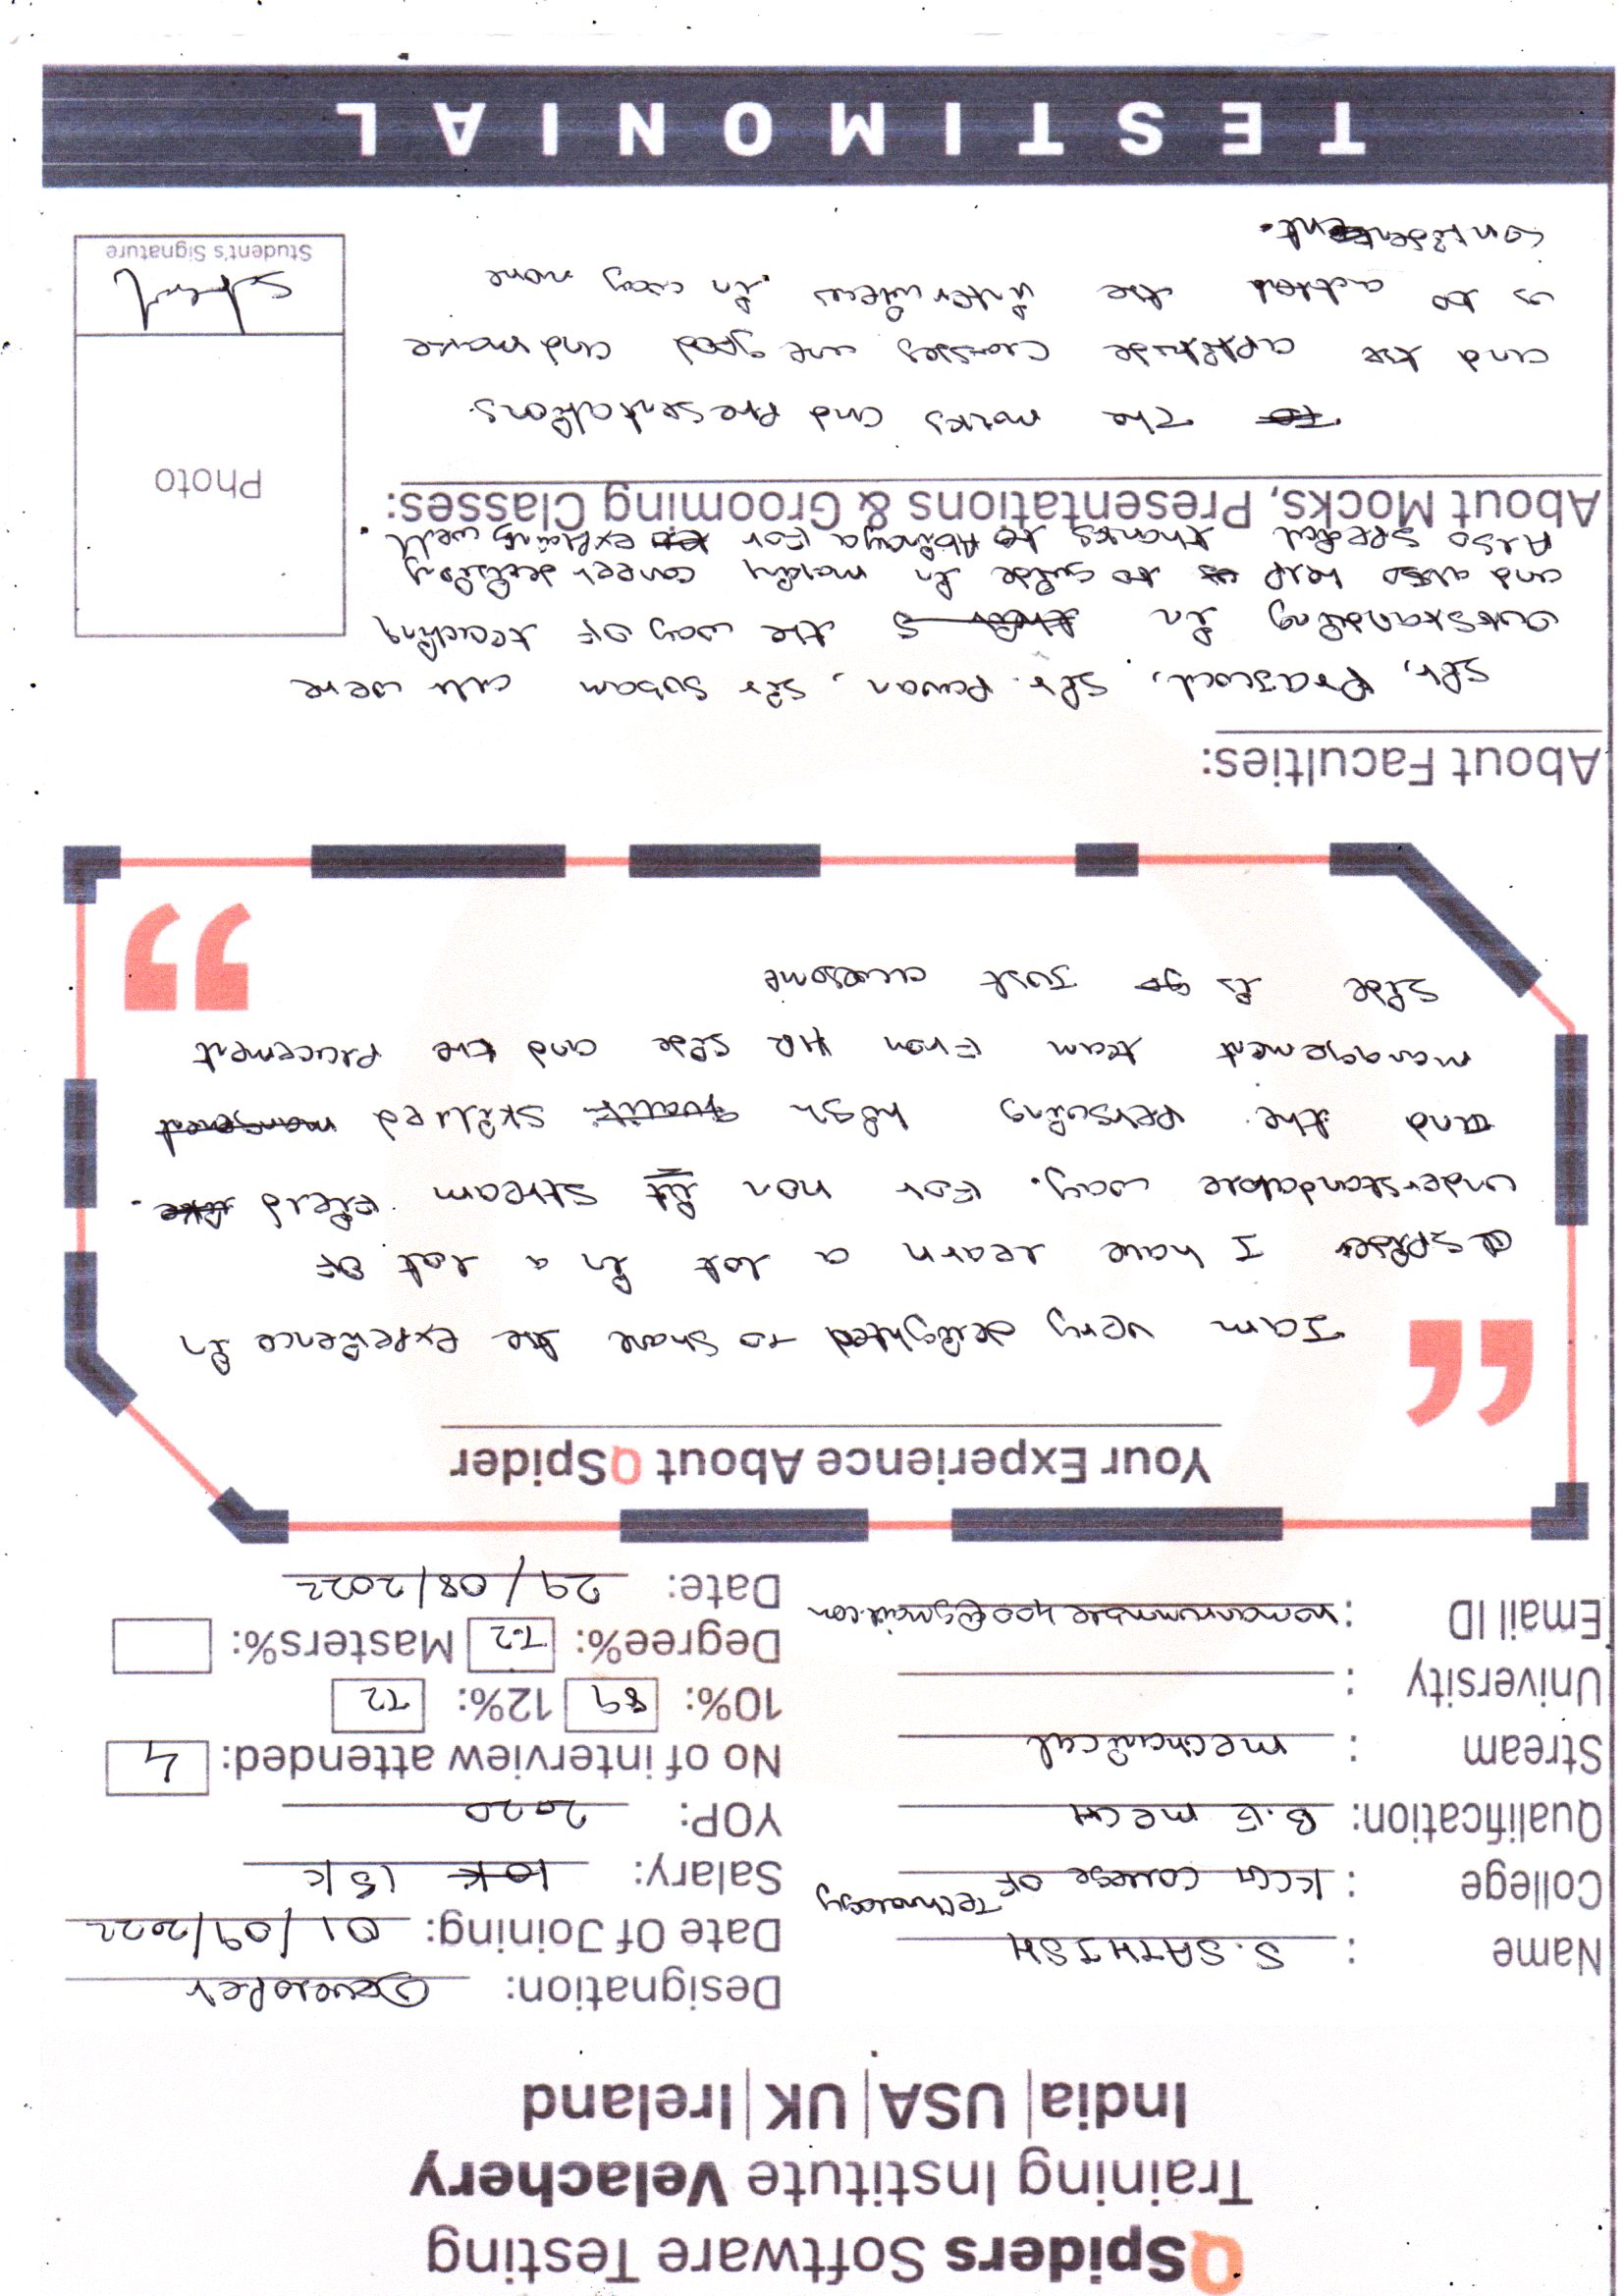 QSpiders Software Testing
Training Institute Velachery
India|USA|UK|Ireland
Name : S. SATHISH
College : KCG College OF Technology
Qualification: B.E MECH
Stream : mechanical
University :
Email ID :
Designation: Developer
Date Of Joining: 01/09/2022
Salary: 10K 15K
YOP: 2020
No of interview attended: 4
10%: 89 12%: 72
Degree%: 7.2 Masters%:
Date: 29/08/2022
Your Experience About QSpider
I am very delighted to share the experience in
QSpider I have learn a lot in a lot OF
understandable way. For non it stream field
and the persuing high skilled
management team From HR side and the placement
side is go just awesome
About Faculties:
Sir, Prasload, Sir. Pavan, Sir Subam all were
outstanding in the way OF teaching
and also help to guide in making career decisiong
Also special thanks to Abinaya For explaing well.
About Mocks, Presentations & Grooming Classes:
To The mocks and presentations.
and the aptitude classes are good and make
us to attend the interview in way more
confident.
Photo
Student's Signature
TESTIMONIAL